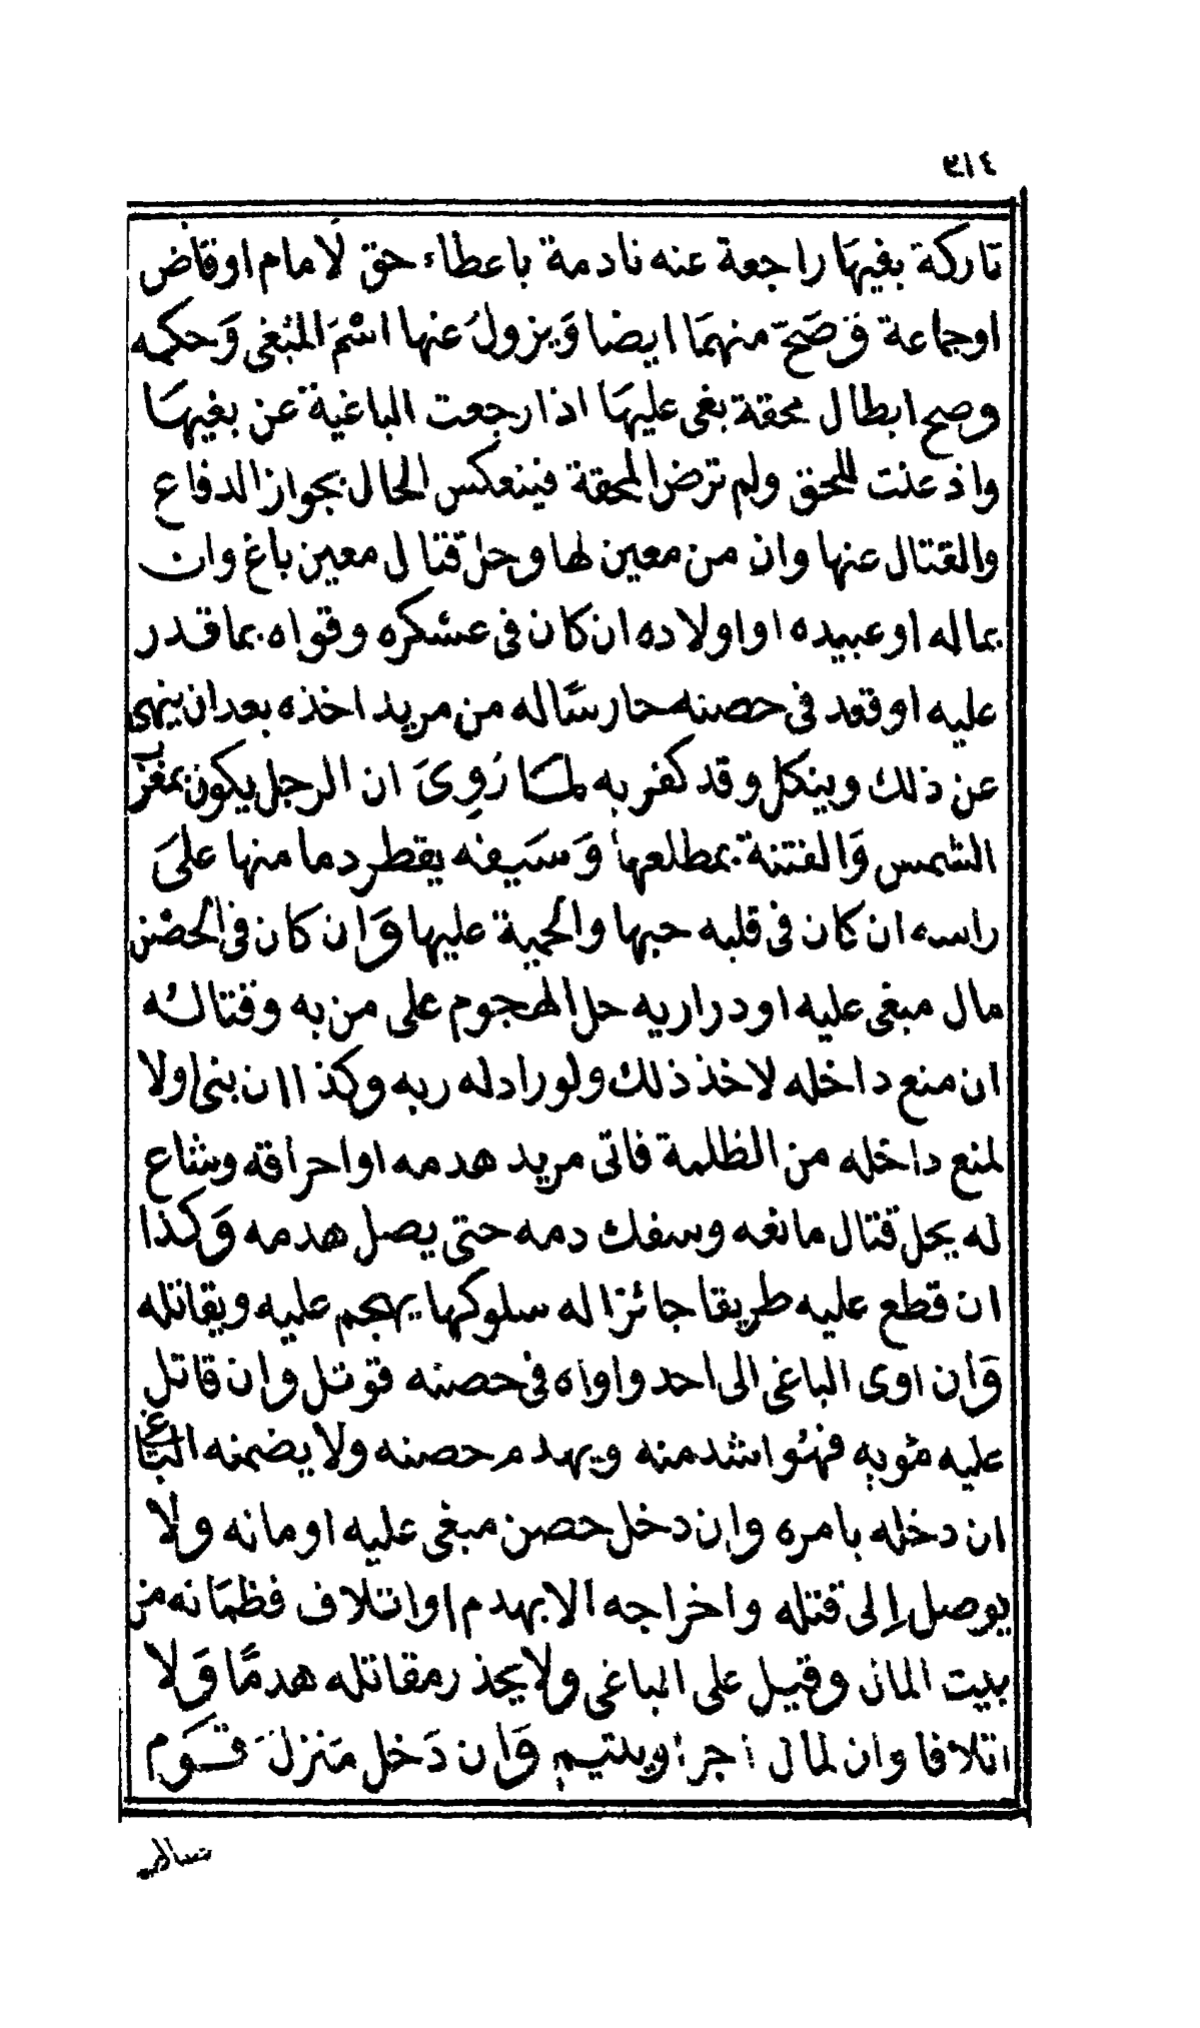 ٣١٤
تاركة بغيها راجعة عنه نادمة باعطاء حق لامام اوقاض
اوجماعة فرضح منهما ايضا ويزول عنها اسم المبغى وحكمه
وصح ابطال محقة بغى عليها اذا رجعت الباغية عن بغيها
واذعنت للحق ولم ترض المحقة فينعكس الحال بجواز الدفاع
والقتال عنها وان من معين لها وحل قتال معين باغ وان
بماله اوعبيده اواولاده ان كان فى عسكره وقواه بما قدر
عليه اوقعد فى حصنه حارسا له من مريد اخذه بعد ان ينهى
عن ذلك وينكل وقد كفر به لما روى ان الرجل يكون بمغرب
الشمس والفتنة بمطلعها وسيفه يقطر دما منها على
راسه ان كان فى قلبه حبها والحمية عليها وان كان فى الحصن
مال مبغى عليه اودراريه حل الهجوم على من به وقتاله
ان منع داخله لاخذ ذلك ولوراد له ربه وكذا ان بنى اولا
لمنع داخله من الظلمة فاتى مريد هدمه اواحراقه وشاع
له يحل قتال مانعه وسفك دمه حتى يصل هدمه وكذا
ان قطع عليه طريقا جائزا له سلوكها يهجم عليه ويقاتله
وان اوى الباغى الى احد واواه فى حصنه قوتل وان قاتل
عليه مؤيه فهو اشد منه ويهدم حصنه ولا يضمنه الباغى
ان دخله بامره وان دخل حصن مبغى عليه اومانه ولا
يوصل إلى قتله واخراجه الا بهدم اواتلاف فظمانه من
بيت المال وقيل على الباغى ولا يحذر مقاتله هدما ولا
اتلافا وان لمال اجر اويتيم وان دخل منزل قوم